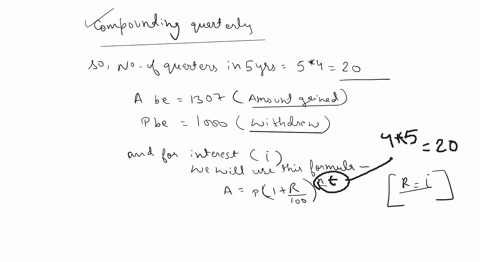 Compounding querterly
so, No. of querters in 5 yrs = 5*4 = 20
A be = 1307 (Amount gained)
P be = 1000 (withdrew)
and for interest (i)
we will use this formula —
A = P(1 + R/100)^nt
4*5 = 20
[R = i]